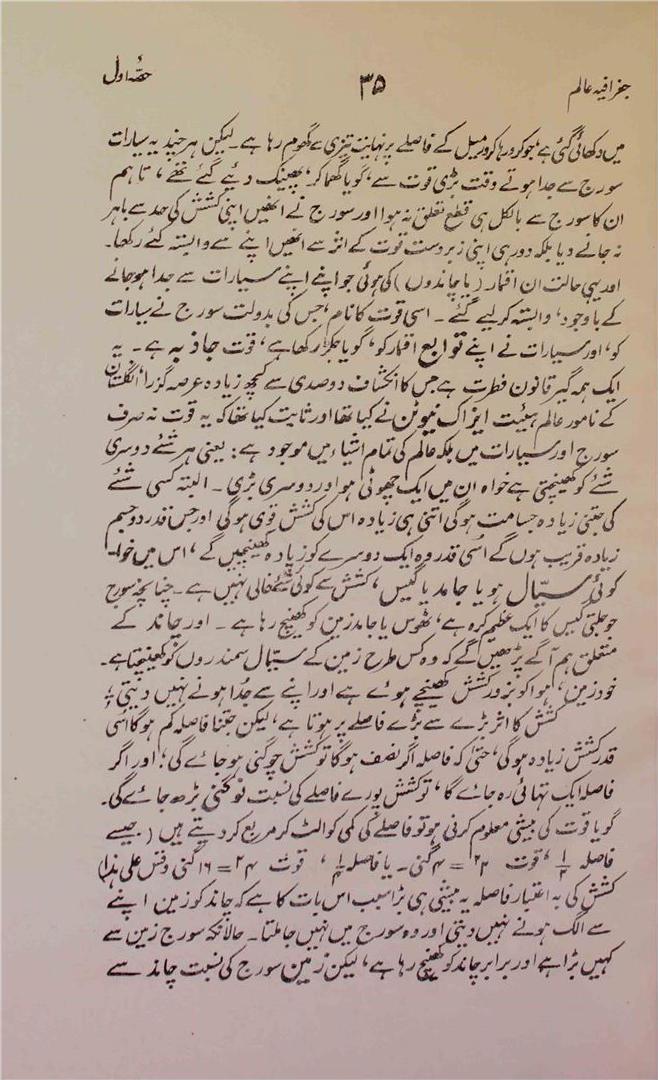 جغرافیہ عالم ۳۵ حصّہ اول
میں دکھائی گئی ہے، جو کرورہا کرور میل کے فاصلے پر نہایت تیزی سے گھوم رہا ہے۔ لیکن ہر چند یہ سیارات
سورج سے جدا ہوتے وقت بڑی قوت سے، گویا گھما کر، پھینک دئیے گئے تھے، تاہم
ان کا سورج سے بالکل ہی قطع تعلق نہ ہوا اور سورج نے انھیں اپنی کشش کی حد سے باہر
نہ جانے دیا بلکہ دور ہی اپنی زبردست قوت کے اثر سے انھیں اپنے سے وابستہ کئے رکھا۔
اور یہی حالت ان اقمار (یا چاندوں) کی ہوئی جو اپنے اپنے سیارات سے جدا ہوجانے
کے باوجود، وابستہ کرلیے گئے۔ اسی قوت کا نام، جس کی بدولت سورج نے سیارات
کو، اور سیارات نے اپنے توابع اقمار کو، گویا جکڑ رکھا ہے، قوت جاذبہ ہے۔ یہ
ایک ہمہ گیر قانون فطرت ہے جس کا انکشاف دو صدی سے کچھ زیادہ عرصہ گزرا، انگلستان
کے نامور عالم ہیئت ایزاک نیوٹن نے کیا تھا اور ثابت کیا تھا کہ یہ قوت نہ صرف
سورج اور سیارات میں بلکہ عالم کی تمام اشیاء میں موجود ہے: یعنی ہر شئے دوسری
شئے کو کھینچتی ہے خواہ ان میں ایک چھوٹی ہو اور دوسری بڑی۔ البتہ کسی شئے
کی جتنی زیادہ جسامت ہوگی اتنی ہی زیادہ اس کی کشش قوی ہوگی اور جس قدر دو جسم
زیادہ قریب ہوں گے اُسی قدر وہ ایک دوسرے کو زیادہ کھینچیں گے، اس میں خواہ
کوئی سیّال ہو یا جامد یا گیس، کشش سے کوئی شئے خالی نہیں ہے۔ چنانچہ سورج
جو جلتی گیس کا ایک عظیم کرہ ہے، ٹھوس یا جامد زمین کو کھینچ رہا ہے۔ اور چاند کے
متعلق ہم آگے پڑھیں گے کہ وہ کس طرح زمین کے سیّال سمندروں کو کھینچتا ہے۔
خود زمین، ہوا کو بزور کشش کھینچے ہوئے ہے اور اپنے سے جُدا ہونے نہیں دیتی؛
کشش کا اثر بڑے سے بڑے فاصلے پر ہوتا ہے، لیکن جتنا فاصلہ کم ہوگا اُسی
قدر کشش زیادہ ہوگی، حتیٰ کہ فاصلہ اگر نصف ہوگا تو کشش چوگنی ہوجائے گی؛ اور اگر
فاصلہ ایک تہائی رہ جائے گا، تو کشش پورے فاصلے کی نسبت نو گنی بڑھ جائے گی۔
گویا قوت کی بیشی معلوم کرنی ہو تو فاصلے کی کمی کو الٹ کر مربع کردیتے ہیں (جیسے
فاصلہ ۱/۲، قوت ۲^۲ = ۴ گنی۔ یا فاصلہ ۱/۴، قوت ۴^۲ = ۱۶ گنی وقس علی ہٰذا)
کشش کی بہ اعتبار فاصلہ یہ بیشی ہی بڑا سبب اس بات کا ہے کہ چاند کو زمین اپنے
سے الگ ہونے نہیں دیتی اور وہ سورج میں نہیں جا ملتا۔ حالانکہ سورج زمین سے
کہیں بڑا ہے اور برابر چاند کو کھینچ رہا ہے، لیکن زمین سورج کی نسبت چاند سے